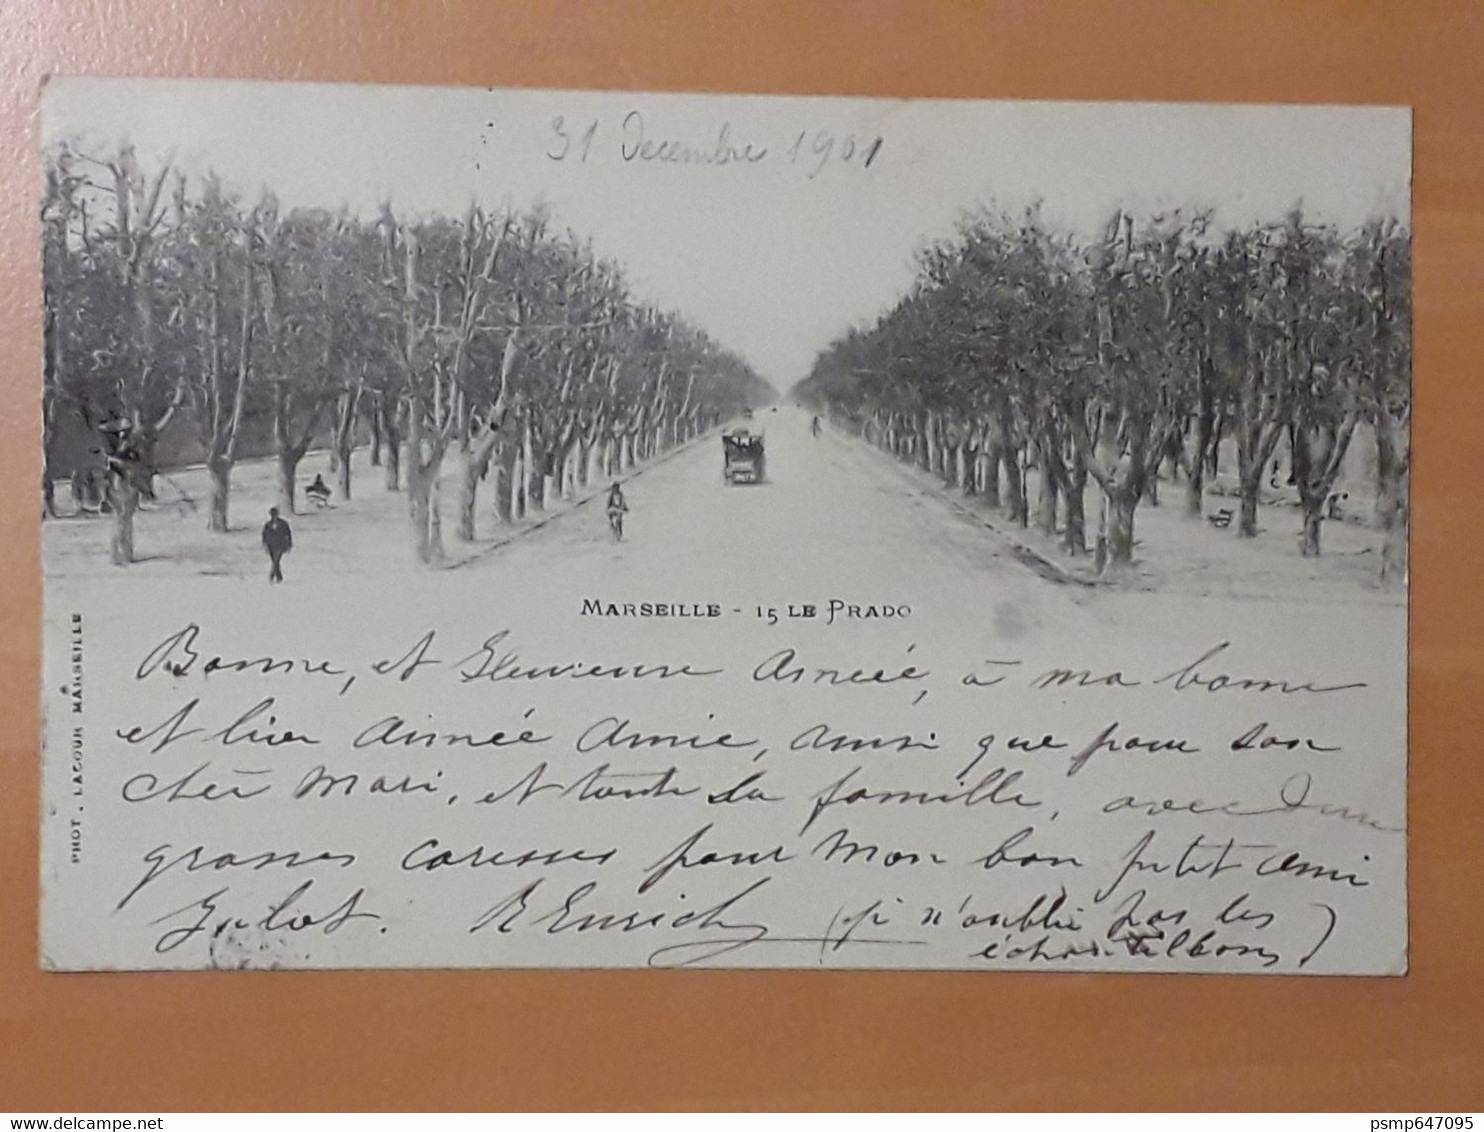 31 Decembre 1901
MARSEILLE - 15 LE PRADO
PHOT. LACOUR MARSEILLE
Bonne, et Heureuse Année, à ma bonne
et bien Aimée Amie, ainsi que pour son
chèr Mari, et toute sa famille, avec
grosses caresses pour Mon bon petit ami
(je n'oublie pas les
échantillons)
psmp647095